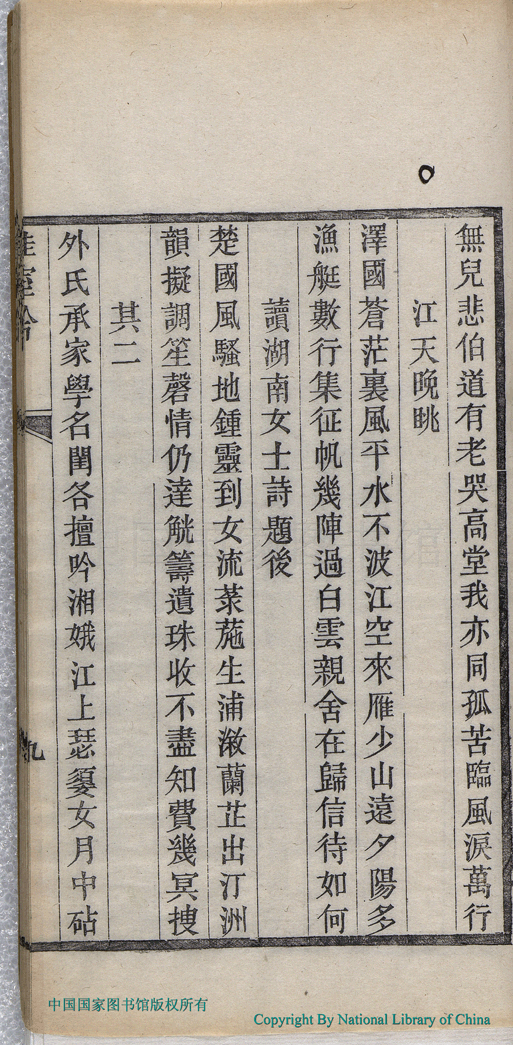 無兒悲伯道有老哭高堂我亦同孤苦臨風淚萬行
江天晚眺
澤國蒼茫裏風平水不波江空來雁少山遠夕陽多
漁艇數行集征帆幾陣過白雲親舍在歸信待如何
讀湖南女士詩題後
楚國風騷地鍾靈到女流菉葹生浦漵蘭芷出汀洲
韻擬調笙磬情仍達觥籌遺珠收不盡知費幾冥搜
其二
外氏承家學名閨各擅吟湘娥江上瑟嬃女月中砧
九
中国国家图书馆版权所有
Copyright By National Library of China